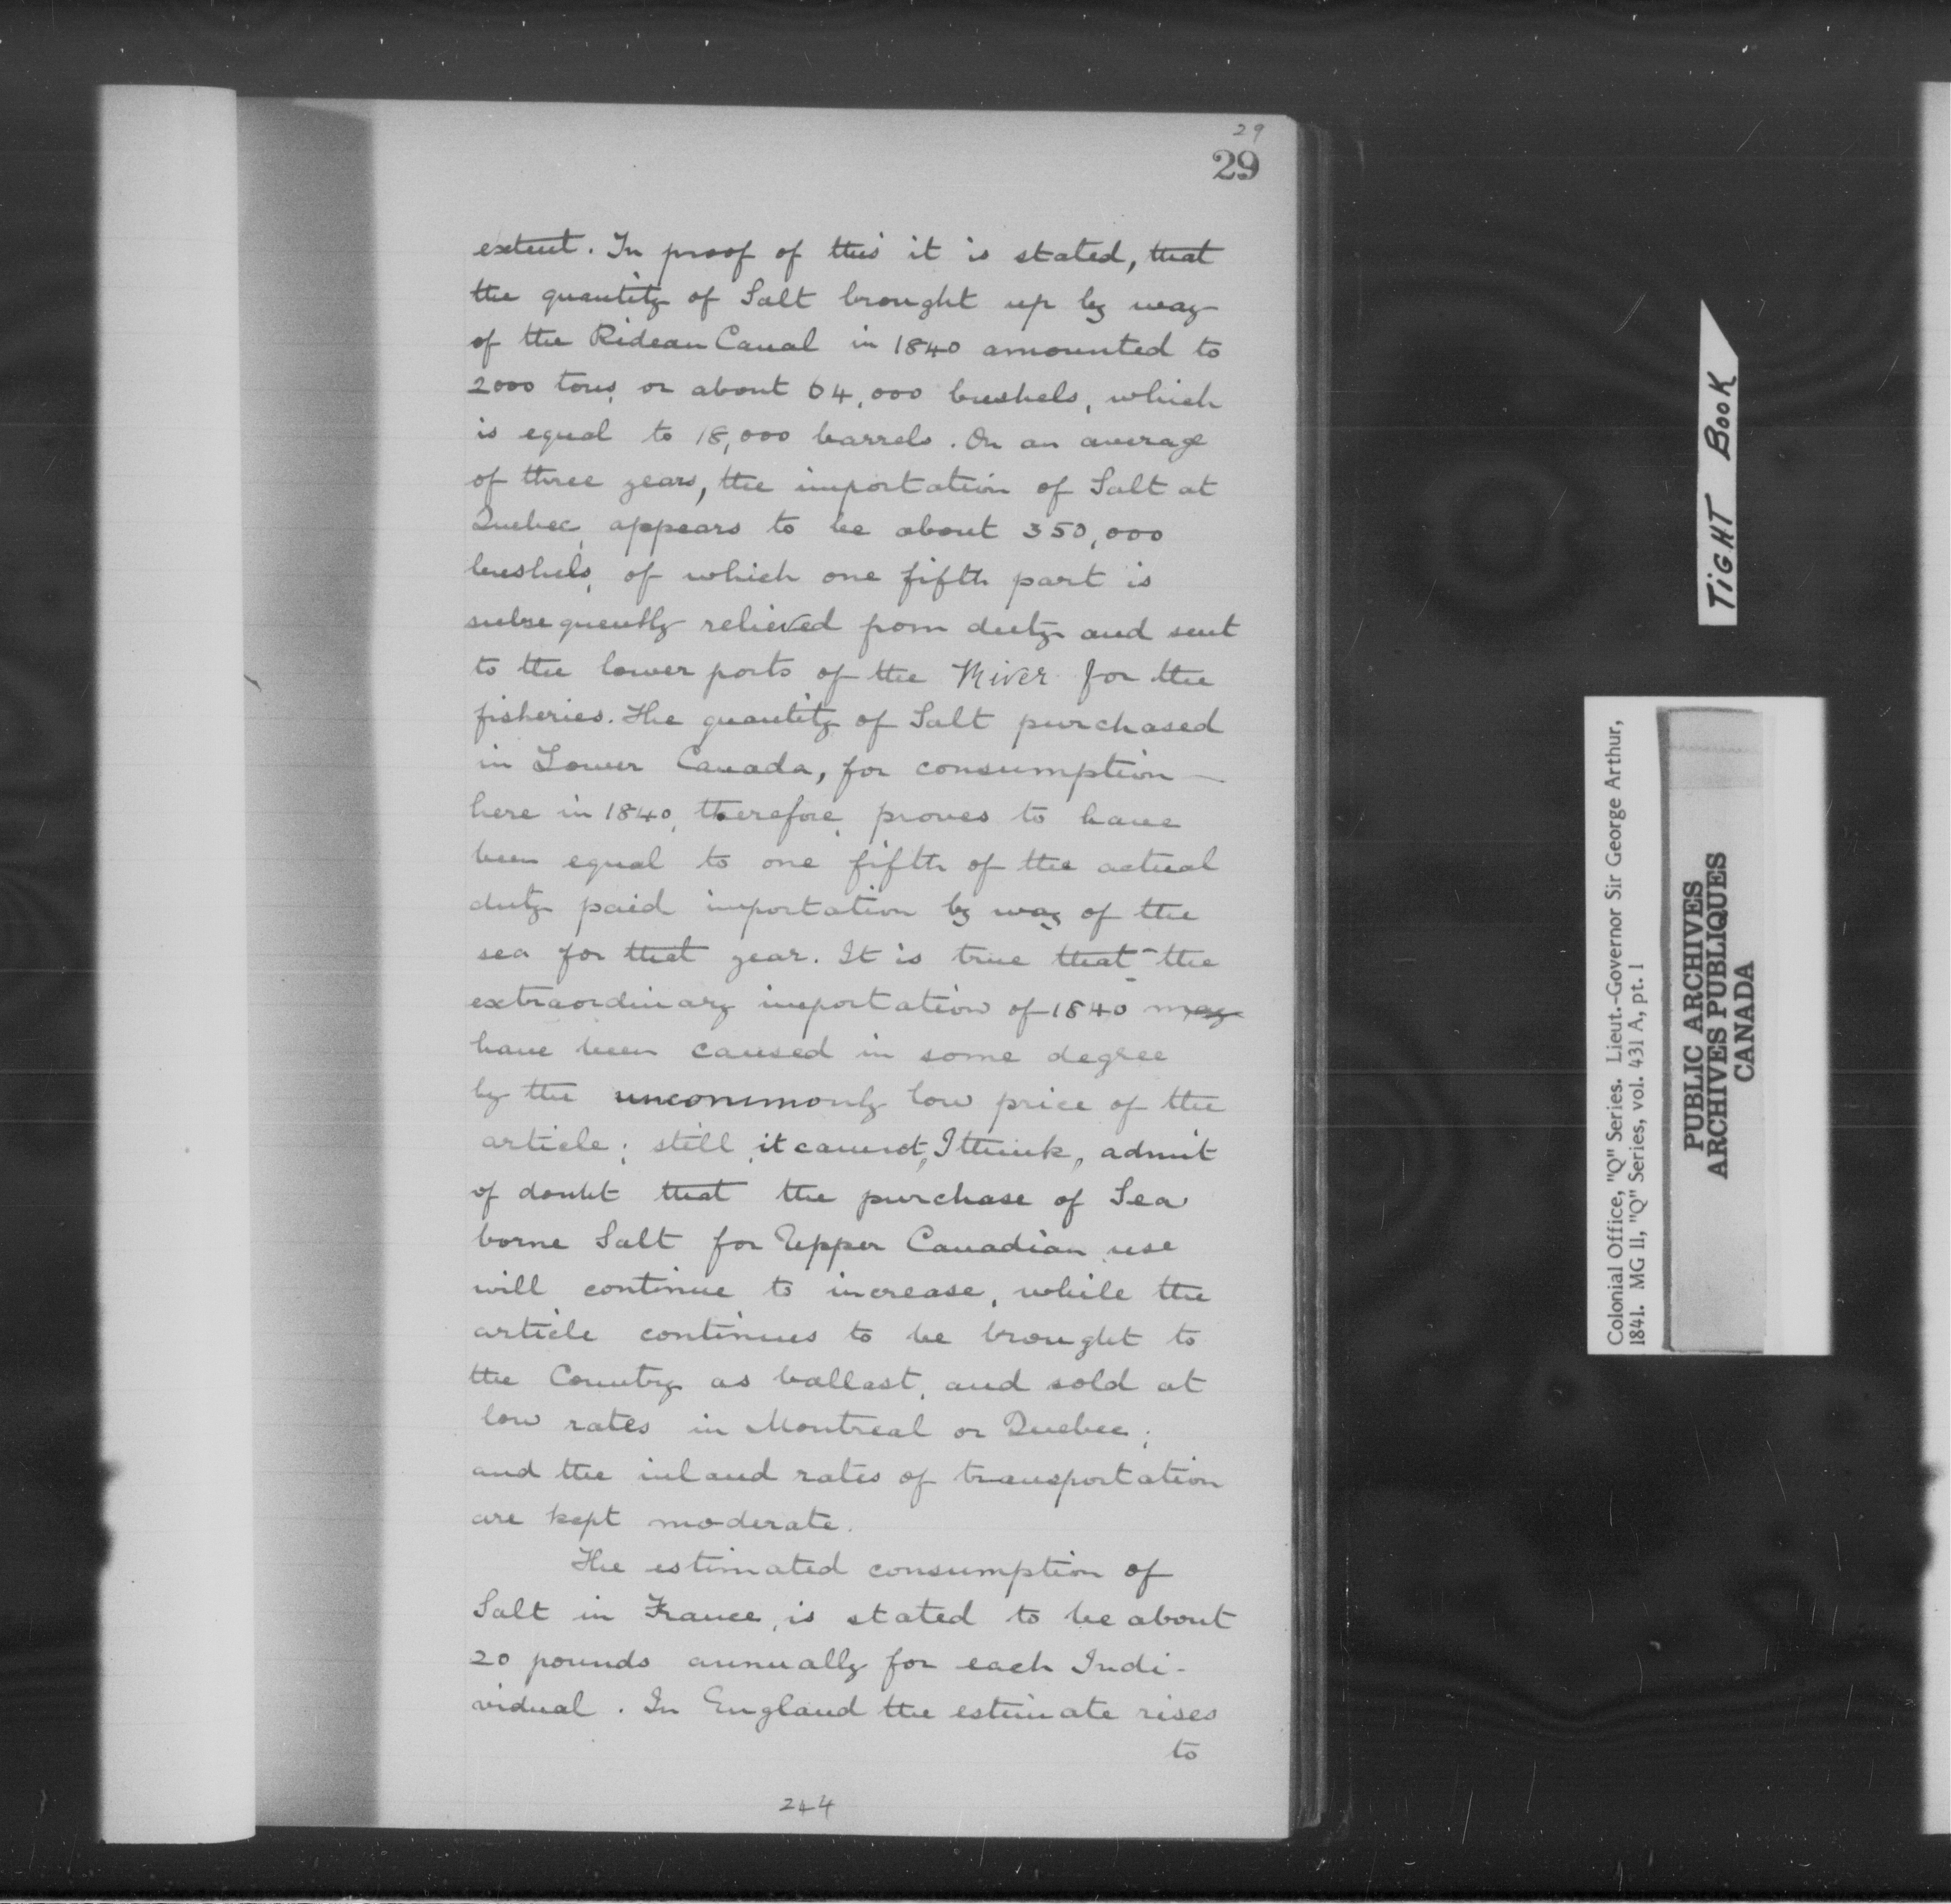 29
29
extent. In proof of this it is stated, that
the quantity of Salt brought up by way
of the Rideau Canal in 1840 amounted to
2000 tons, or about 64,000 bushels, which
is equal to 18,000 barrels. On an average
of three years, the importation of Salt at
Quebec, appears to be about 350,000
bushels, of which one fifth part is
subsequently relieved from duty and sent
to the lower ports of the River for the
fisheries. The quantity of Salt purchased
in Lower Canada, for consumption —
here in 1840, therefore, proves to have
been equal to one fifth of the actual
duty paid importation by way of the
sea for that year. It is true that the
extraordinary importation of 1840 may
have been caused in some degree
by the uncommonly low price of the
article; still, it cannot, I think, admit
of doubt that the purchase of Sea
borne Salt for Upper Canadian use
will continue to increase, while the
article continues to be brought to
the Country as ballast, and sold at
low rates in Montreal or Quebec;
and the inland rates of transportation
are kept moderate.
The estimated consumption of
Salt in France, is stated to be about
20 pounds annually for each Indi-
vidual. In England the estimate rises
to
244
TiGHT BOOK
Colonial Office, "Q" Series. Lieut.-Governor Sir George Arthur,
1841. MG 11, "Q" Series, vol. 431 A, pt. 1
PUBLIC ARCHIVES
ARCHIVES PUBLIQUES
CANADA